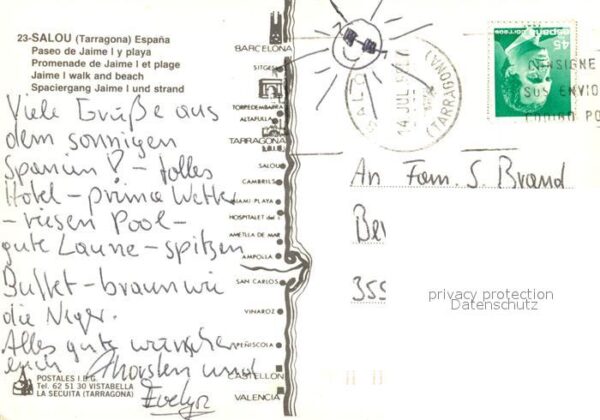 23-SALOU (Tarragona) España
Paseo de Jaime I y playa
Promenade de Jaime I et plage
Jaime I walk and beach
Spaciergang Jaime I und strand
Viele Grüße aus
dem sonnigen
Spanien! - tolles
Hotel - prima Wetter
- riesen Pool -
gute Laune - spitzen
Buffet - braun wie
die Neger.
Alles gute wünschen
euch Thorsten und
Evelyn
POSTALES I.B.G.
Tel. 62 51 30 VISTABELLA
LA SECUITA (TARRAGONA)
BARCELONA
SITGES
TORREDEMBARRA
ALTAFULLA
TARRAGONA
SALOU
CAMBRILS
MIAMI PLAYA
HOSPITALET del
AMETLLA DE MAR
AMPOLLA
SAN CARLOS
VINAROZ
PEÑISCOLA
CASTELLON
VALENCIA
SALOU
14 JUL
(TARRAGONA)
45
españa
correos
CONSIGNE
SUS ENVIO
CODIGO PO
An Fam. S. Brand
Ber
355
privacy protection
Datenschutz